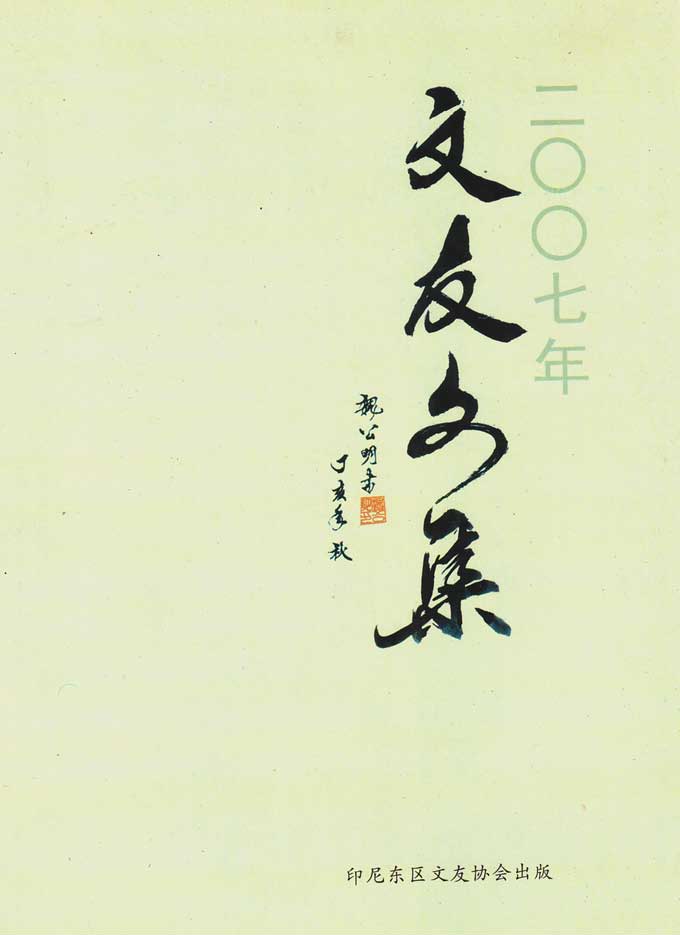 二〇〇七年
文友文集
魏公明书
丁亥年秋
印尼东区文友协会出版